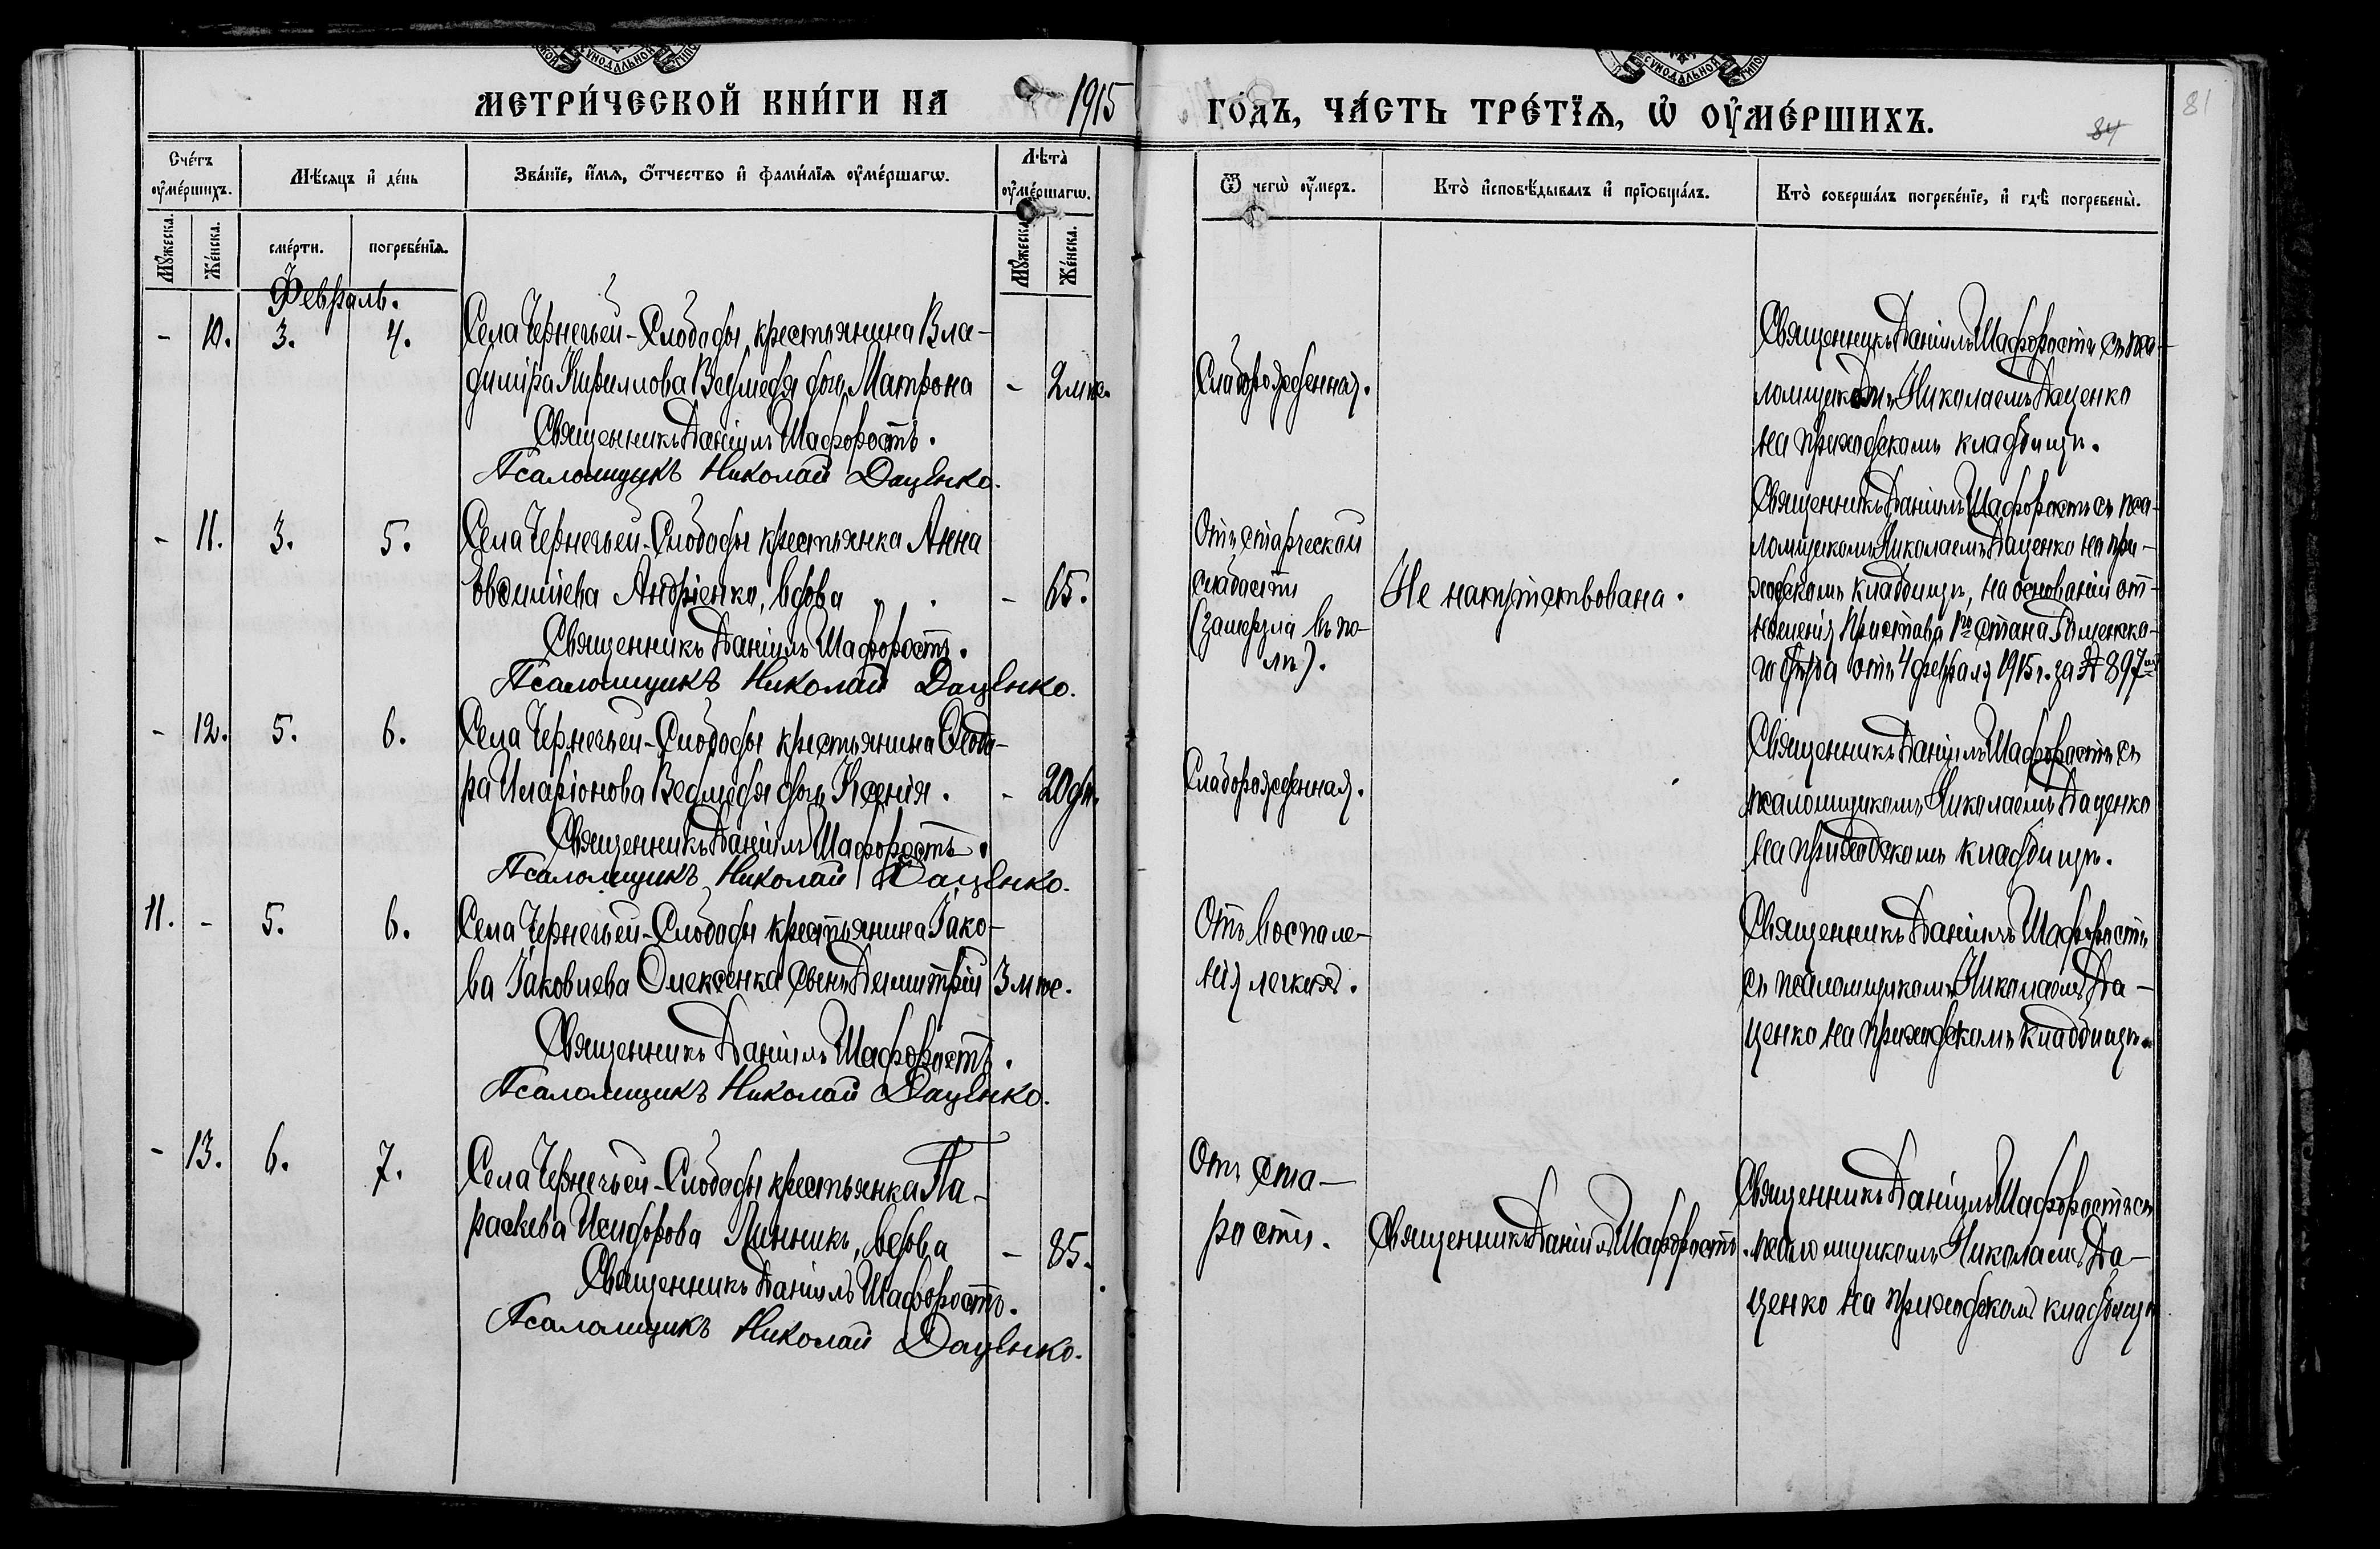 МЕТРИ́ЧЕСКОЙ КНИ́ГИ НА 1915 ГО́ДЪ, ЧА́СТЬ ТРЕ́ТЇѦ, Ѡ҆ ОУ҆МЕ́РШИХЪ.
84
81
Сче́тъ оу҆ме́ршихъ.
Мѣ́сяцъ и҆ де́нь
Зва́нїе, и҆́мя, ѻ҆́тчество и҆ фами́лїя оу҆ме́ршагѡ.
Лѣ́та оу҆ме́ршагѡ.
Ѿ чегѡ̀ оу҆́меръ.
Кто̀ и҆сповѣ́дывалъ и҆ прїѡбща́лъ.
Кто̀ соверша́лъ погребе́нїе, и҆ гдѣ̀ погребены̀.
Мꙋ́жеска.
Же́нска.
сме́рти.
погребе́нїя.
Мꙋ́жеска.
Же́нска.
Февраль.
- 10. 3. 4.
Села Чернечьей-Слободы, крестьянина Вла-
диміра Кириллова Ведмедя дочь Матрона - 2 м це.
Священникъ Даніилъ Шафоростъ.
Псаломщикъ Николай Даценко.
Слаборожденная.
Священникъ Даніилъ Шафоростъ съ пса-
ломщикомъ Николаемъ Даценко
на приходскомъ кладбищѣ.
- 11. 3. 5.
Села Чернечьей-Слободы крестьянка Анна
Евфиміева Андріенко, вдова - 65.
Священникъ Даніилъ Шафоростъ.
Псаломщикъ Николай Даценко.
Отъ старческой
слабости
(замерзла въ по-
лѣ).
Не напутствована.
Священникъ Даніилъ Шафоростъ съ пса-
ломщикомъ Николаемъ Даценко на при-
ходскомъ кладбищѣ, на основаніи от-
ношенія Пристава 1го стана
уѣзда отъ 4 февраля 1915 г. за № 897
- 12. 5. 6.
Села Чернечьей-Слободы крестьянина Ѳеодо-
ра Иларіонова Ведмедя дочь Ксенія. - 20 дн.
Священникъ Даніилъ Шафоростъ.
Псаломщикъ Николай Даценко.
Слаборожденная.
Священникъ Даніилъ Шафоростъ съ
псаломщикомъ Николаемъ Даценко
на приходскомъ кладбищѣ.
11. - 5. 6.
Села Чернечьей-Слободы крестьянина Іако-
ва Іаковлева Олексенка сынъ Димитрій 3 м це.
Священникъ Даніилъ Шафоростъ.
Псаломщикъ Николай Даценко.
Отъ воспале-
нія легкихъ.
Священникъ Даніилъ Шафоростъ
съ псаломщикомъ Николаемъ Да-
ценко на приходскомъ кладбищѣ.
- 13. 6. 7.
Села Чернечьей-Слободы крестьянка Па-
раскева Исидорова Линникъ, вдова - 85.
Священникъ Даніилъ Шафоростъ.
Псаломщикъ Николай Даценко.
Отъ ста-
рости.
Священникъ Даніилъ Шафоростъ.
Священникъ Даніилъ Шафоростъ съ
псаломщикомъ Николаемъ Да-
ценко на приходскомъ кладбищѣ